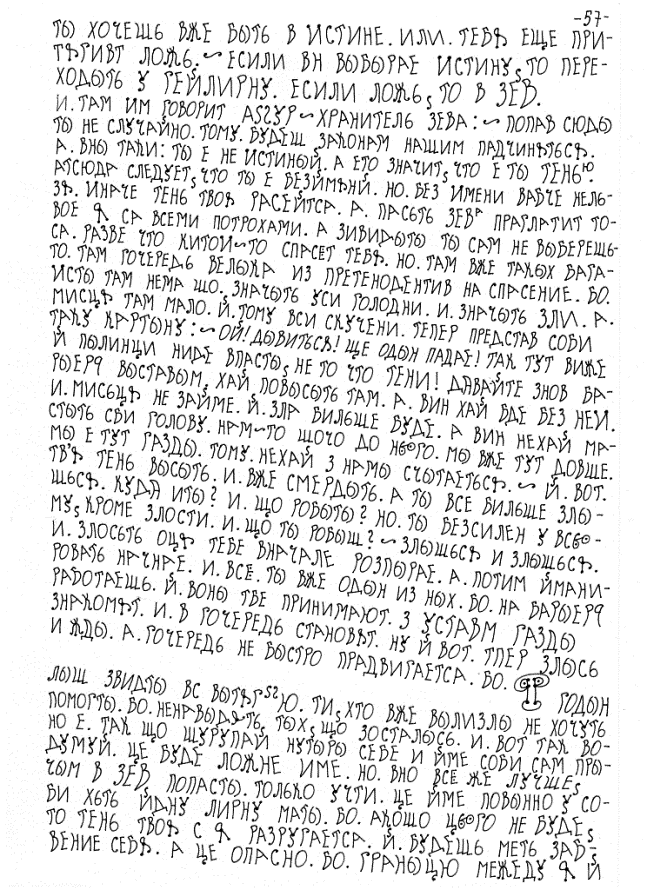 -57-
ТЫ ХОЧЕШЬ ВЖЕ БЫТЬ В ИСТИНЕ. ИЛИ. ТЕБѢ ЕЩЕ ПРИ-
ТѢГИВТ ЛОЖЬ. ~ ЕСИЛИ ВН ВЫБЫРАЕ ИСТИНУ, ТО ПЕРЕ-
ХОДЫТЬ У ГЕЙЛИРНУ. ЕСИЛИ ЛОЖЬ, ТО В ЗЕВ.
И. ТАМ ИМ ГОВОРИТ ~ ХРАНИТЕЛЬ ЗЕВА: ~ ПОПАВ СЮДЫ
ТЫ НЕ СЛУЧАЙНО. ТОМУ. БУДЕШ ЗАКОНАМ НАШИМ ПАДЧИНѢТЬСѢ.
А. ВНЫ ТАКИ: ТЫ Е НЕ ИСТИНЫЙ. А ЕТО ЗНАЧИТ, ЧТО Е ТЫ ТЕНЬЮ.
АТСЮДА СЛЕДУЕТ, ЧТО ТЫ Е БЕЗИМѢНИ. НО. БЕЗ ИМЕНИ ВАБЧЕ НЕЛЬ-
ЗѢ. ИНАЧЕ ТЕНЬ ТВОѢ РАСЕЙТСА. А. ПАСЬТЬ ЗЕВА ПРАГЛАТИТ ТО-
БОЕ Ѧ СА ВСЕМИ ПОТРОХАМИ. А ЗИВИДЫТЫ ТЫ САМ НЕ ВЫБЕРЕШЬ-
СА. РАЗВЕ ЧТО КИТОЙ~ТО СПАСЕТ ТЕБѢ. НО. ТАМ ВЖЕ ТАКЫХ БАГА-
ТО. ТАМ ГОЧЕРЕДЬ ВЕЛЫКА ИЗ ПРЕТЕНОДЕНТИВ НА СПАСЕНИЕ. БО.
ИСТЫ ТАМ НЕМА ЩО. ЗНАЧЫТЬ УСИ ГОЛОДНИ. И. ЗНАЧЫТЬ ЗЛИ. А.
МИСЦѢ ТАМ МАЛО. Й. ТОМУ ВСИ СКУЧЕНИ. ТЕПЕР ПРЕДСТАВ СОБИ
ТАКУ КАРТЫНУ: ~ ОЙ! ДЫВИТЬСѢ! ЩЕ ОДЫН ПАДАЕ! ТАК ТУТ ВИЖЕ
Й ПЫЛИНЦИ НИДЕ ВПАСТЫ, НЕ ТО ЧТО ТЕНИ! ДАВАЙТЕ ЗНОВ БА-
РЫЕРЧ ВЫСТАВЫМ, ХАЙ ПОВЫСЫТЬ ТАМ. А. ВИН ХАЙ ВДЕ БЕЗ НЕИ.
И. МИСЬЦѢ НЕ ЗАЙМЕ. Й. ЗЛА БИЛЬШЕ БУДЕ. А ВИН НЕХАЙ МА-
СТЫТЬ СВИ ГОЛОВУ. НАМ~ТО ЩОЧО ДО НЬОГО. МЫ ВЖЕ ТУТ ДОВШЕ.
МЫ Е ТУТ ГАЗДЫ. ТОМУ. НЕХАЙ З НАМЫ СЧЫТАЕТЬСѢ. ~ Й. ВОТ.
ТВѢ ТЕНЬ ВЫСЫТЬ. И. ВЖЕ СМЕРДЫТЬ. А ТЫ ВСЕ БИЛЬШЕ ЗЛЫ-
ШЬСѢ. КУДА ИТЫ? И. ЩО РОБЫТЫ? НО. ТЫ БЕЗСИЛЕН У ВСЬО-
МУ, КРОМЕ ЗЛОСТИ. И. ЩО ТЫ РОБЫШ? ~ ЗЛЫШЬСѢ И ЗЛЫШЬСѢ.
И. ЗЛОСЬТЬ ОЦѢ ТЕБЕ ВНАЧАЛЕ РОЗПЫРАЕ. А. ПОТИМ ЙМАНИ-
РОВАТЬ НАЧНАЕ. И. ВСЕ. ТЫ ВЖЕ ОДЫН ИЗ НЫХ. БО. НА БАРЫЕРЧ
РАБОТАЕШЬ. Й. ВОНЫ ТБЕ ПРИНИМАЮТ. З УСТАВМ ГАЗДЫ
ЗНАКОМѢТ. И. В ГОЧЕРЕДЬ СТАНОВѢТ. НУ Й ВОТ. ТПЕР ЗЛЫСЬ
И ЖДЫ. А. ГОЧЕРЕДЬ НЕ БЫСТРО ПРАДВИГАЕТСА. БО. ГОДЫН
ЛЫШ ЗВИДТЫ ВС. ТИ, ХТО ВЖЕ ВЫЛИЗЛЫ НЕ ХОЧУТЬ
ПОМОГТЫ. БО. НЕНАВЫДѢТЬ, ТЫХ, ЩО ЗОСТАЛЫСЬ. И. ВОТ ТАК ВО-
НО Е. ТАК ЩО ШУРУПАЙ НУТЫРЫ СЕБЕ И ЙМЕ СОБИ САМ ПРЫ-
ДУМУЙ. ЦЕ БУДЕ ЛОЖНЕ ИМЕ. НО. ВНО ВСЕ ЖЕ ЛУЧШЕ,
ЧЫМ В ЗЕВ ПОПАСТЫ. ТОЛЬКО УЧТИ. ЦЕ ЙМЕ ПОВЫННО У СО-
БИ ХЬТЬ ЙДНУ ЛИРНУ МАТЫ. БО. АКОШО ЦЬОГО НЕ БУДЕ,
ТО ТЕНЬ ТВОѢ С Ѧ РАЗРУГАЕТСА. Й. БУДЕШЬ МЕТЬ ЗАБ-
ВЕНИЕ СЕБѢ. А ЦЕ ОПАСНО. БО. ГРАНЫЦЮ МЕЖЕДУ Ѧ Й